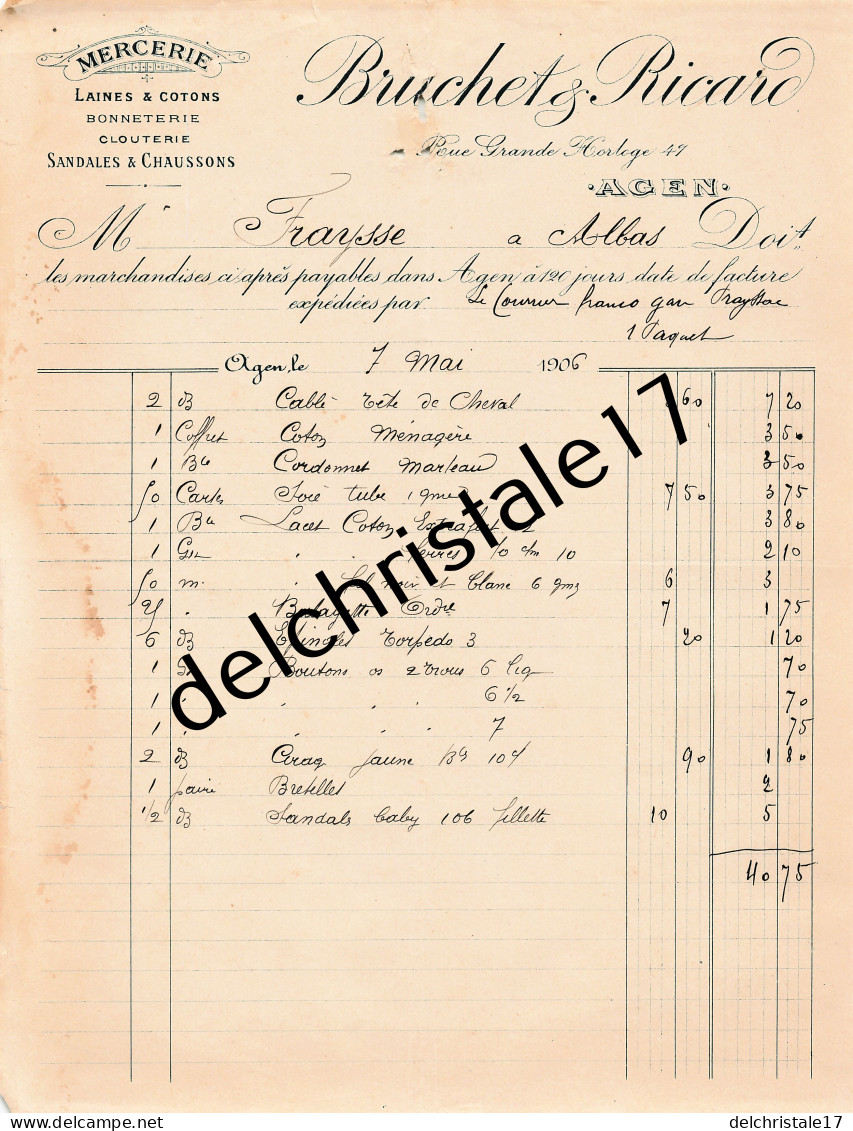 MERCERIE
LAINES & COTONS
BONNETERIE
CLOUTERIE
SANDALES & CHAUSSONS
Bruchet & Ricard
Rue Grande Horloge 47
AGEN
Mr Fraysse a Albas Doit
les marchandises ci après payables dans Agen à 120 jours date de facture
expédiées par Le Courrier franco gare
1 Paquet
Agen, le 7 Mai 1906
2 dz Cablé tête de Cheval 3 60 7 20
1 Coffret Coton Ménagère 3 50
1 Bte Cordonnet Marteau 3 50
50 Cartes Soie tube 7 50 3 75
1 Bte Lacet Coton 3 80
1 Gr " " 10 2 10
50 m. " noir et blanc 6 6 3
25 " 7 1 75
6 dz Epingles Torpedo 3 20 1 20
1 Gr Boutons os 2 trous 6 lig 70
1 " " " " 6 1/2 70
1 " " " " 7 75
2 dz jaune 90 1 80
1 paire Bretelles 2
1/2 dz Sandals baby 106 fillette 10 5
40 75
delchristale17
delchristale17